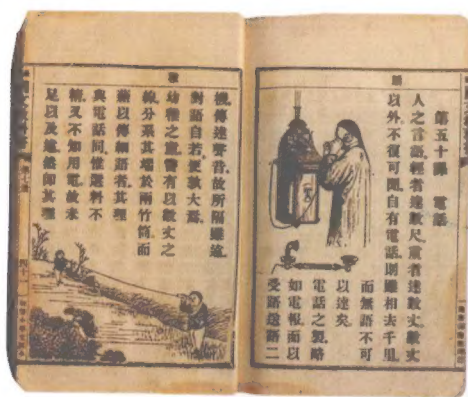 第五十課 電話
人之言語輕者達數尺重者達數丈數丈
以外不復可聞自有電話則雖相去千里
而無語不可
以達矣
電話之製略
如電報而以
受話送話二
機傳達聲音故所隔雖遠
對語自若便孰大焉
幼稚之童嘗有以數丈之
線分系其端於兩竹筒而
藉以傳細語者其理
與電話同惟選料不
精又不知用電故未
足以及遠然即其理
四十一